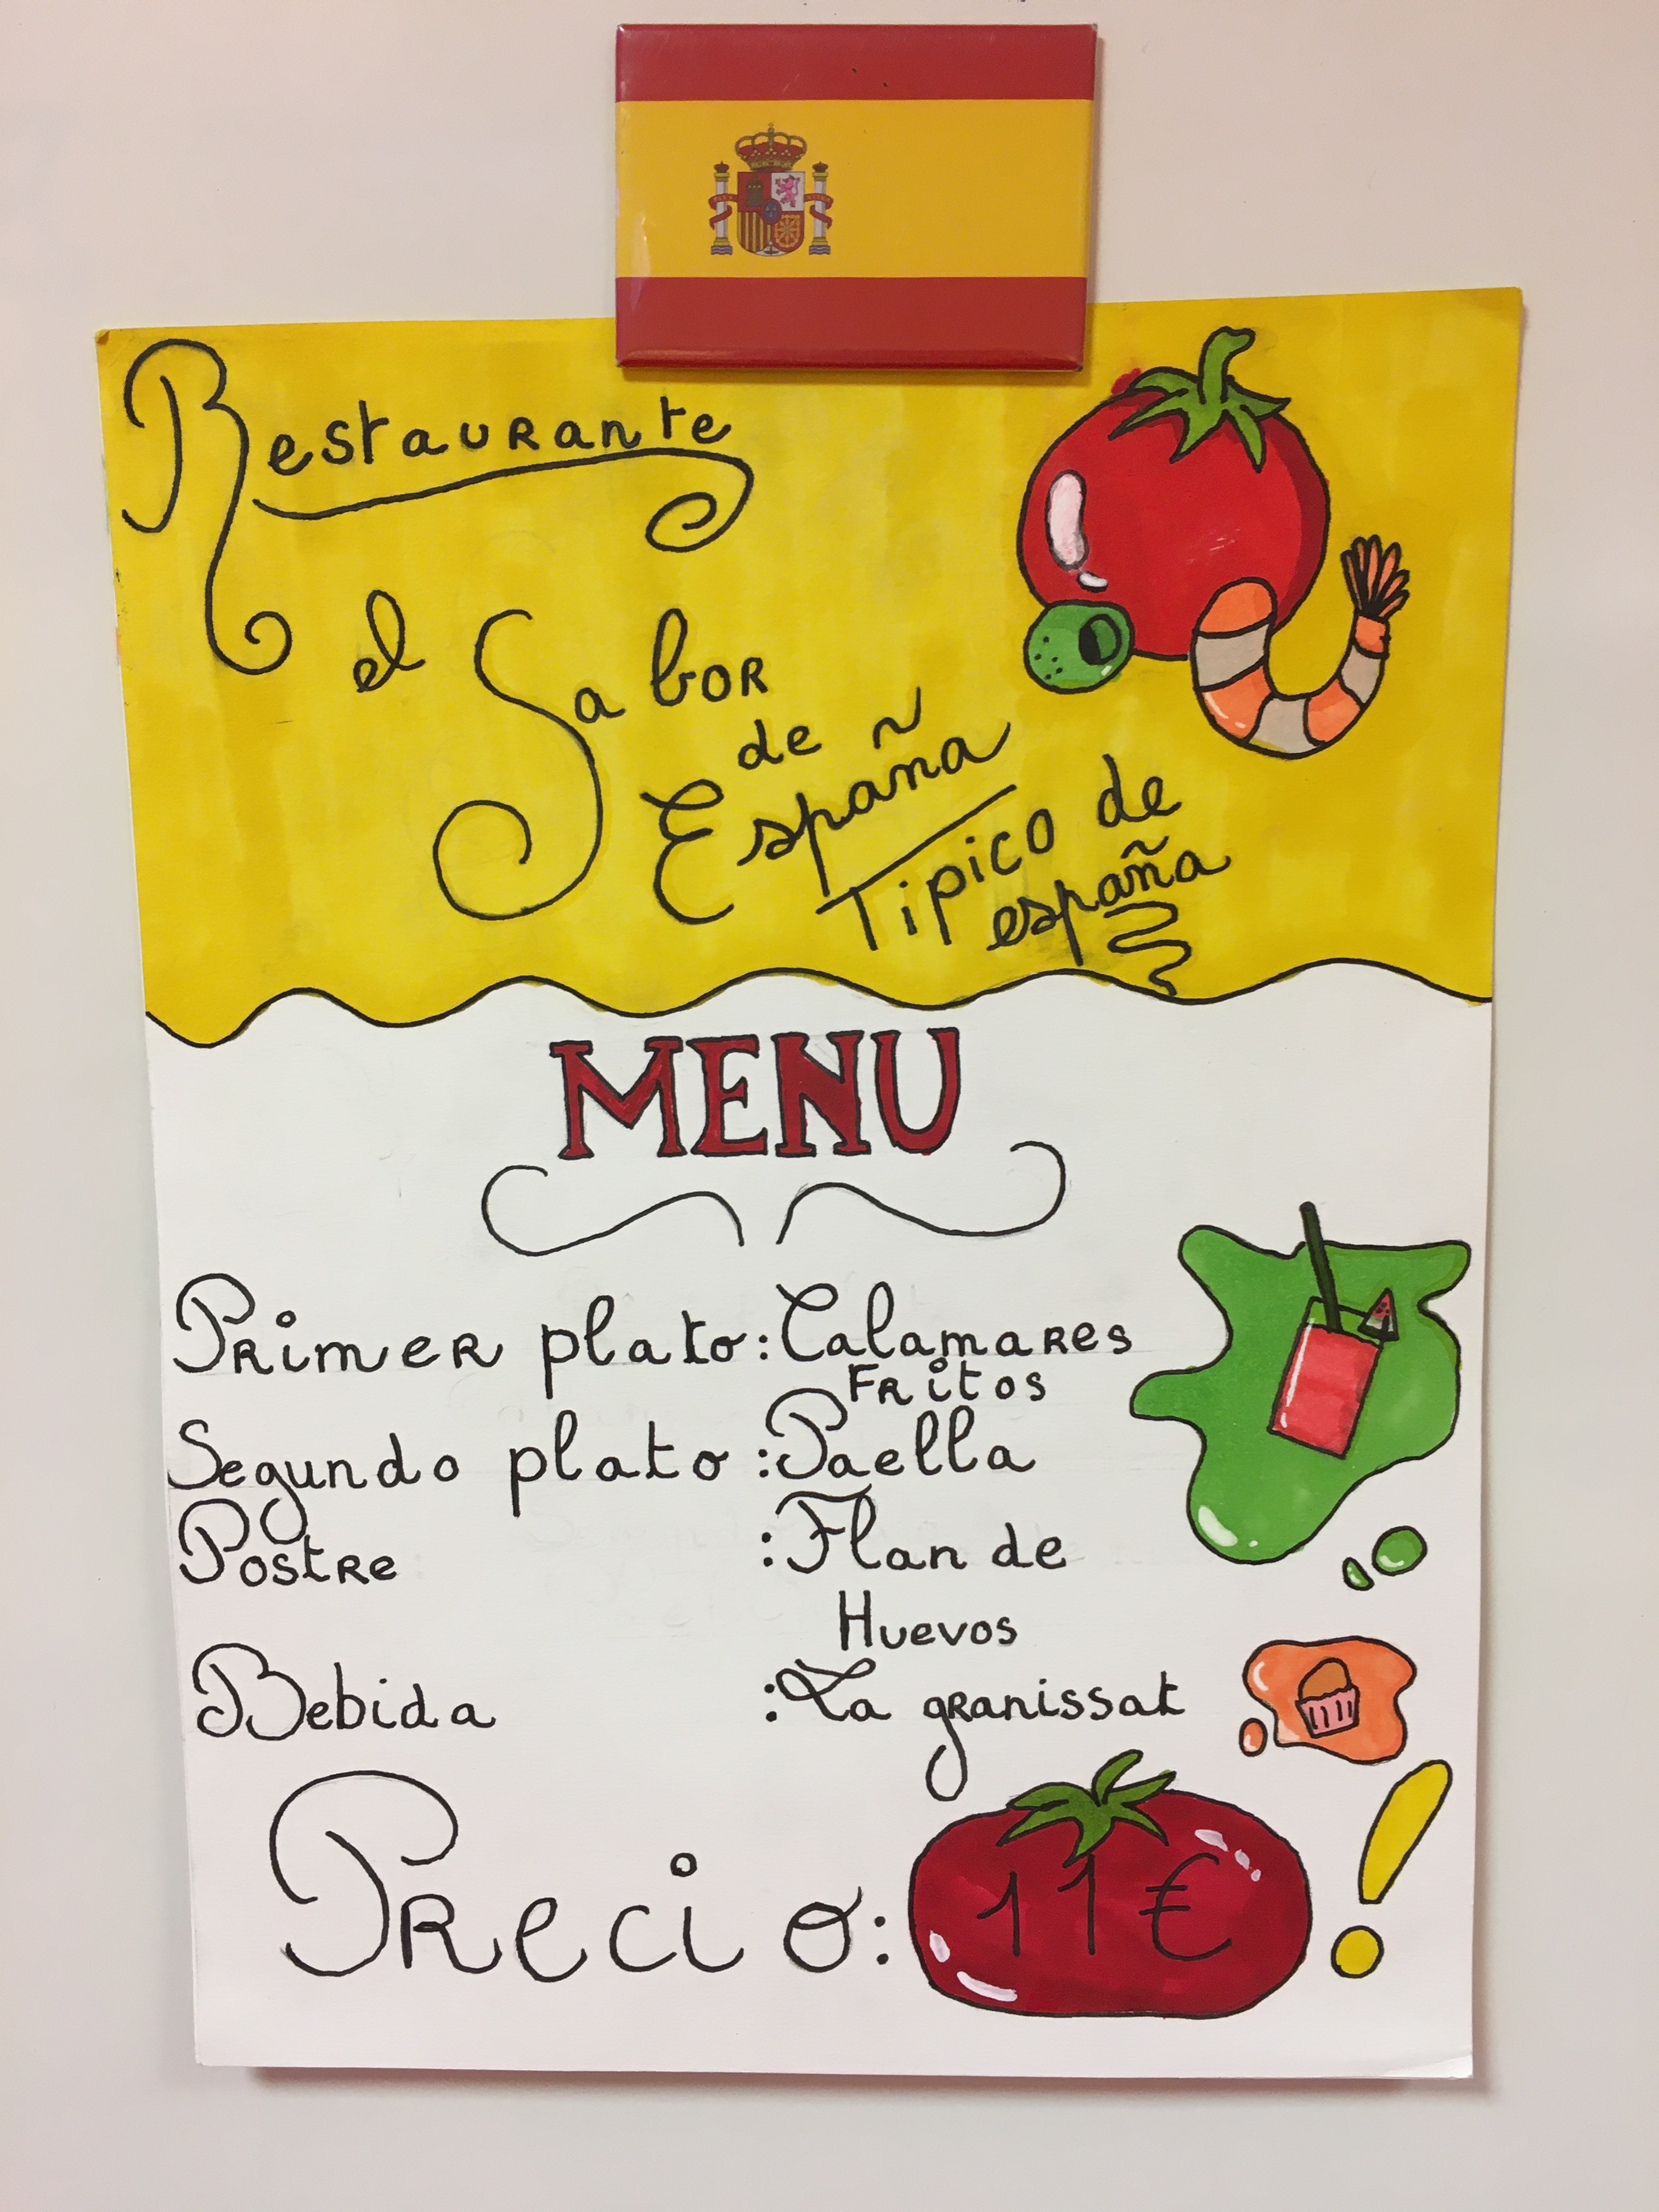 Restaurante
el Sabor
de
España
Tipico de
españa
MENU
Primer plato : Calamares
Fritos
Segundo plato : Paella
Postre : Flan de
Huevos
Bebida : La granissat
Precio : 11€ !